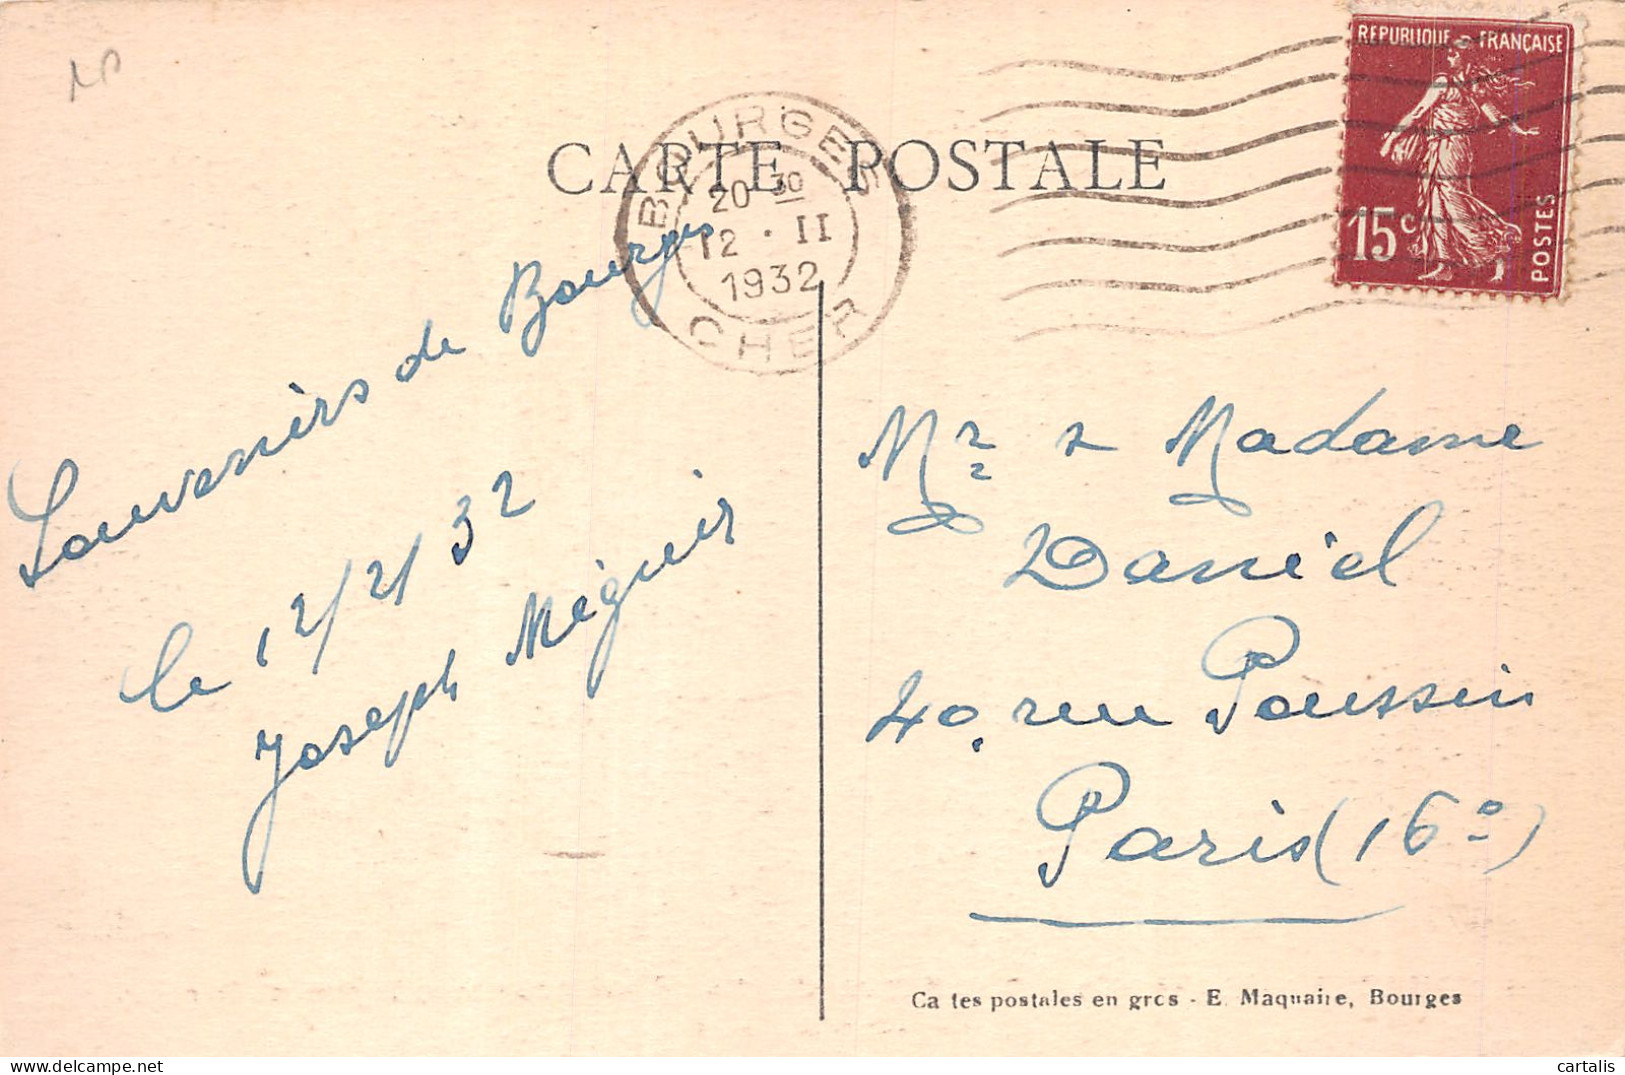 REPUBLIQUE FRANÇAISE
15c
POSTES
BOURGES
20 30
12 • II
1932
CHER
CARTE POSTALE
Souvenirs de Bourges
le 12/2/32
Joseph
Mr & Madame
Daniel
40, rue Poussin
Paris (16e)
Ca tes postales en gros - E. Maquaire, Bourges
cartalis